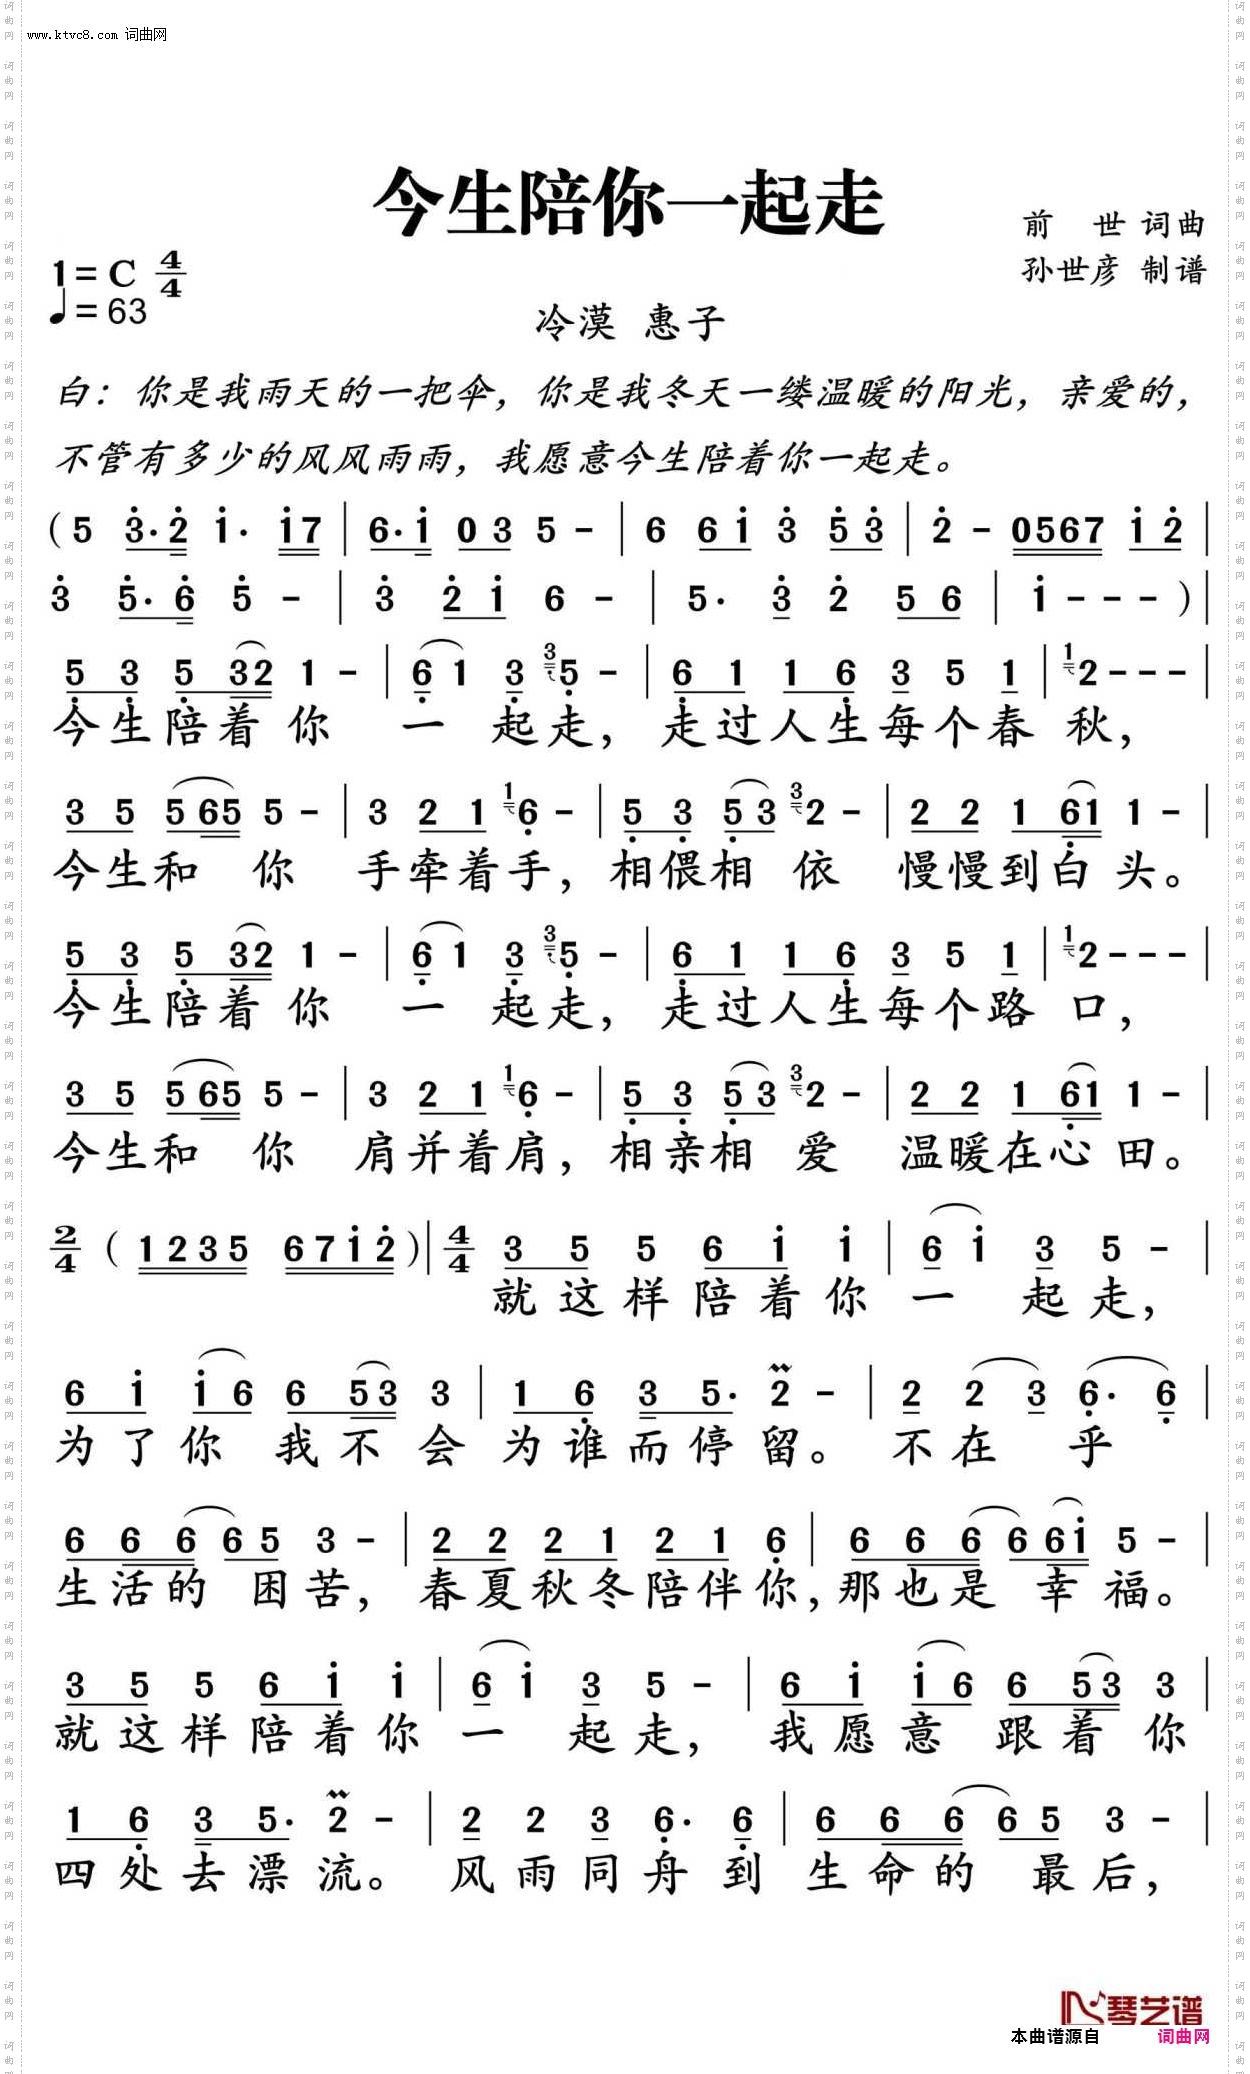 www.ktvc8.com 词曲网
今生陪你一起走
前 世 词曲
孙世彦 制谱
1=C 4/4
♩=63
冷漠 惠子
白：你是我雨天的一把伞，你是我冬天一缕温暖的阳光，亲爱的，
不管有多少的风风雨雨，我愿意今生陪着你一起走。
(5 3·2 1· 17 | 6·1 0 3 5 - | 6 6 1 3 5 3 | 2 - 0567 1 2 |
3 5·6 5 - | 3 2 1 6 - | 5· 3 2 5 6 | 1 - - - ) |
5 3 5 32 1 - | 6 1 3 3 5 - | 6 1 1 6 3 5 1 | 1 2 - - - |
今生陪着你 一 起走，走过人生每个春 秋，
3 5 5 65 5 - | 3 2 1 1 6 - | 5 3 5 3 3 2 - | 2 2 1 61 1 - |
今生和 你 手牵着手，相偎相 依 慢慢到白头。
5 3 5 32 1 - | 6 1 3 3 5 - | 6 1 1 6 3 5 1 | 1 2 - - - |
今生陪着你 一 起走，走过人生每个路 口，
3 5 5 65 5 - | 3 2 1 1 6 - | 5 3 5 3 3 2 - | 2 2 1 61 1 - |
今生和 你 肩并着肩，相亲相 爱 温暖在心田。
2/4 (1235 6712) | 4/4 3 5 5 6 1 1 | 6 1 3 5 - |
就这样陪着你 一 起走，
6 1 1 6 6 53 3 | 1 6 3 5· 2 - | 2 2 3 6· 6 |
为了你 我不会 为谁而停留。不在 乎
6 6 6 6 5 3 - | 2 2 2 1 2 1 6 | 6 6 6 6 61 5 - |
生活的 困苦，春夏秋冬陪伴你，那也是 幸 福。
3 5 5 6 1 1 | 6 1 3 5 - | 6 1 1 6 6 53 3 |
就这样陪着你 一 起走，我愿意 跟着你
1 6 3 5· 2 - | 2 2 3 6· 6 | 6 6 6 6 5 3 - |
四处去漂流。风雨同舟到 生命的 最后，
琴艺谱
本曲谱源自 词曲网